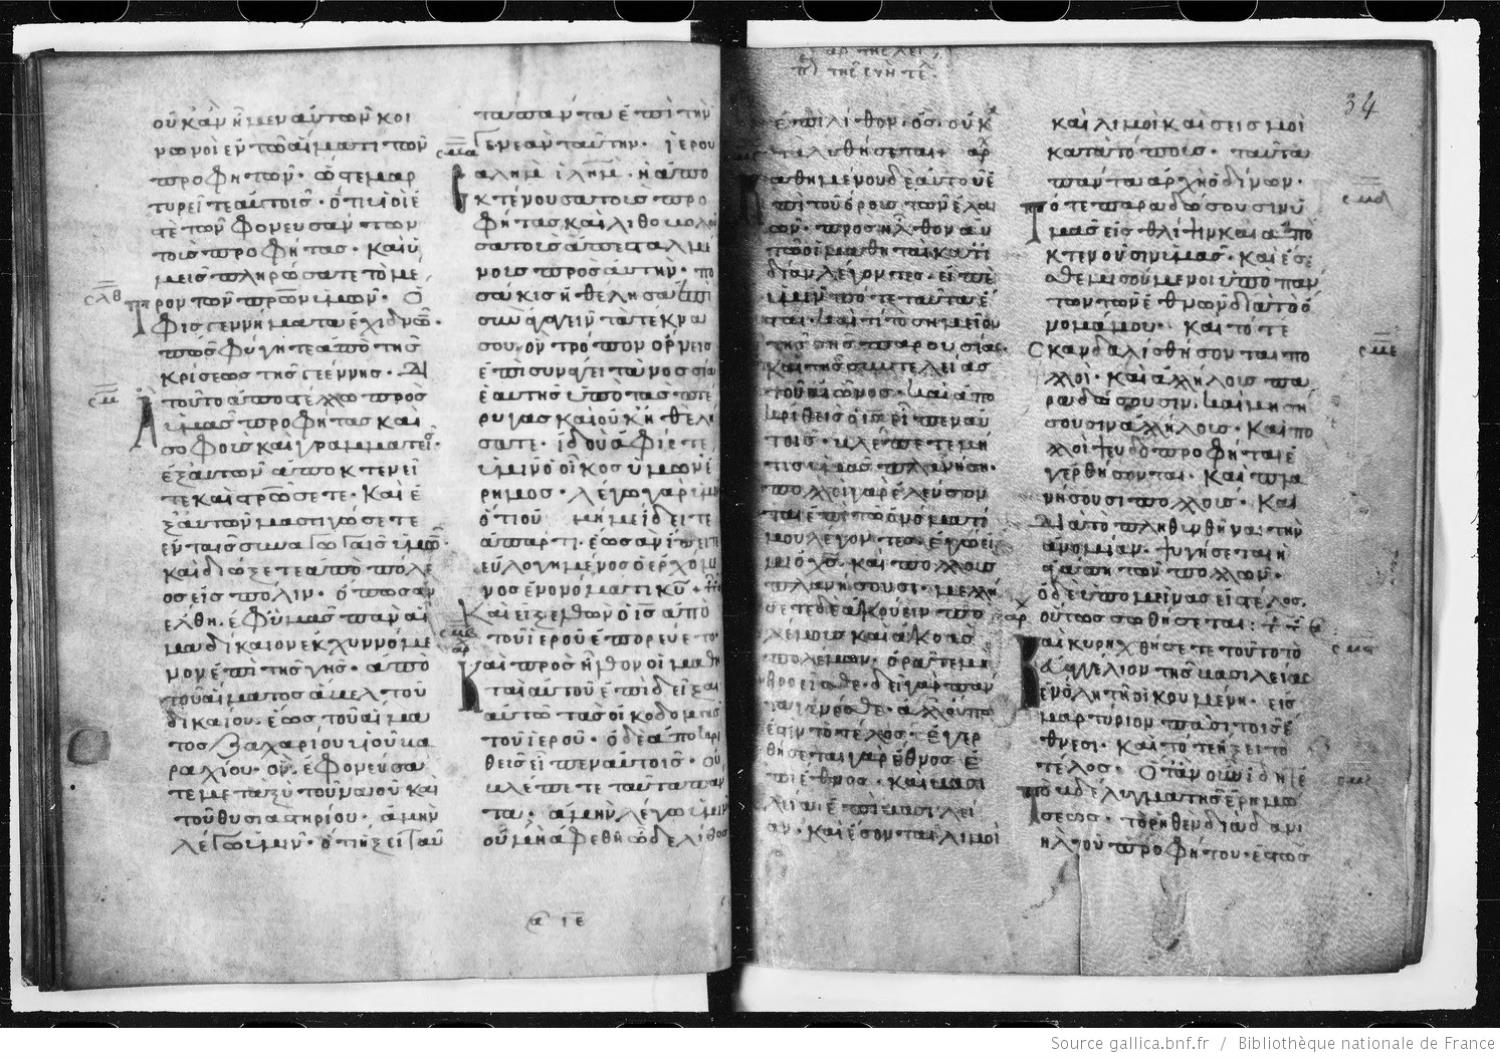 οὐκ ἂν ἤμεν αὐτῶν κοι
νωνοὶ ἐν τῶ αἵματι τῶν
προφητῶν· ὥστε μαρ
τυρεῖτε αὑτοῖς· ὅτι υἱοί ἐ
στε τῶν φονευσάντων
τοὺς προφήτας· καὶ ὑ
μεῖς πληρώσατε τὸ μέ
σλθ
τρον τῶν πρῶν ὑμῶν· Ὄ
φις γεννήματα ἐχιδνῶ·
πῶς φύγητε ἀπὸ τῆς
κρίσεως τῆς γεέννης· Δι
σμ
ατοῦτο ἀποστέλλω πρὸς
ὑμᾶς προφήτας καὶ
σοφοὺς καὶ γραμματεῖς·
ἐξ αὐτῶν ἀποκτενεῖ
τε καὶ στρώσετε· καὶ ἐ
ξ αὐτῶν μαστιγώσετε
ἐν ταῖς συναγωγαῖς ὑμῶ·
καὶ διώξετε ἀπὸ πόλε
ως εἰς πόλιν· ὅπως ἂν
ἔλθη ἐφ ὑμᾶς πᾶν αἷ
μα δίκαιον ἐκχυννόμε
νον ἐπὶ τῆς γῆς· ἀπὸ
τοῦ αἵματος ἄμελ τοῦ
δικαίου· ἕως τοῦ αἵμα
τος Ζαχαρίου υἱοῦ βα
ραχίου· ὃν ἐφονεύσα
τε μεταξὺ τοῦ ναοῦ καὶ
τοῦ θυσιαστηρίου· ἀμὴν
λέγω ὑμῖν· ὅτι ἥξει ταῦ
τα πάντα ἐπὶ τὴν
σμα
γενεὰν ταύτην· ἱερου
σαλὴμ ἰλημ· ἡ ἀπο
κτένουσα τοὺς προ
φήτας καὶ λιθοβολοῦ
σα τοὺς ἀπεσταλμέ
νους πρὸς αὐτήν· πο
σάκις ἠθέλησα ἐπι
συνάγειν τὰ τέκνα
σου· ὃν τρόπον ὄρνεις
ἐπισυνάγει τὰ νοσσία
ἑαυτῆς ὑπὸ τὰς πτέ
ρυγας καὶ οὐκ ἠθελή
σατε· ἰδοὺ ἀφίετε
ὑμῖν ὁ οἶκος ὑμῶν ἔ
ρημος· λέγω γὰρ ὑμῖν
ὅτι οὐ μή με ἴδειτε
ἀπάρτι· ἕως ἂν εἴπειτε
εὐλογημένος ὁ ἐρχόμε
νος ἐν ὀνόματι κυ
Καὶ ἐξελθὼν ὁ ις ἀπὸ
σμβ
τοῦ ἱεροῦ ἐπορεύετο·
Καὶ προσῆλθον οἱ μαθη
ταὶ αὐτοῦ ἐπιδεῖξαι
αὐτῶ τὰς οἰκοδομὰς
τοῦ ἱεροῦ· ὁ δὲ ἀποκρι
θεὶς εἶπεν αὐτοῖς· οὐ
βλέπετε ταῦτα πάν
τα· ἀμὴν λέγω ὑμῖν
οὐ μὴ ἀφεθῆ ὧδε λίθος
ιε
34
ἐπὶ λίθον· ὃς οὐ κα
ταλυθήσεται
Καθημένου δὲ αὐτοῦ ἐ
πὶ τοῦ ὄρους τῶν ἐλαι
ῶν· προσῆλθον αυ
τῶ οἱ μαθηταὶ κατἰ
δίαν λέγοντες· εἰπὲ
ἡμῖν πότε ταῦτα ἔ
σται· καὶ τί τὸ σημεῖον
τῆς σῆς παρουσίας·
καὶ τῆς συντελείας
τοῦ αἰῶνος· καὶ ἀπο
κριθεὶς ὁ ις εἶπεν αὐ
τοῖς· βλέπετε μή
τις ὑμᾶς πλανήση·
πολλοὶ γὰρ ἐλεύσον
ται ἐπὶ τῶ ὀνόματί
μου λέγοντες· ἐγώ εἰ
μι ὁ χς· καὶ πολλοὺς
πλανήσουσι· μελλή
σετε δὲ ἀκούειν πο
λέμους καὶ ἀκοὰς
πολέμων· ὁρᾶτε μὴ
θροεῖσθε· δεῖ γὰρ πάν
τα γενέσθε· ἀλλ οὔπω
ἐστὶν τὸ τέλος· ἐγερ
θήσεται γὰρ ἔθνος ἐ
πὶ ἔθνος· καὶ βασι
λεία ἐπὶ βασιλεί
αν· καὶ ἔσονται λιμοὶ
καὶ λιμοὶ καὶ σεισμοὶ
κατὰ τόπους· ταῦτα
πάντα ἀρχὴ ὠδίνων·
σμδ
Τότε παραδώσουσιν ὑ
μᾶς εἰς θλίψιν καὶ ἀπο
κτενοῦσιν ὑμᾶς· καὶ ἔσε
σθε μισούμενοι ὑπὸ πάν
των τῶν ἐθνῶν διὰ τὸ ὄ
νομά μου· καὶ τότε
σμε
σκανδαλισθήσονται πο
λλοί· καὶ ἀλλήλους πα
ραδώσουσιν· καὶ μισή
σουσιν ἀλλήλους· καὶ πο
λλοὶ ψευδοπροφῆται ἐ
γερθήσονται· καὶ πλα
νήσουσι πολλούς· καὶ
διὰ τὸ πληθυνθῆναι τὴν
ἀνομίαν· ψυγήσεται ἡ
ἀγάπη τῶν πολλῶν·
ὁ δὲ ὑπομείνας εἰς τέλος,
οὕτως σωθήσεται:
Καὶ κηρυχθήσετε τοῦτο τὸ
εὐαγγέλιον τῆς βασιλείας
ἐν ὅλη τῆ οἰκουμένη· εἰς
μαρτύριον πᾶσι τοῖς ἔ
θνεσι· καὶ τότε ἥξει τὸ
τέλος· Ὅταν οὖν ἴδητε
τὸ βδέλυγμα τῆς ἐρημώ
σεως· τὸ ῥηθὲν διὰ δανι
ὴλ τοῦ προφήτου· ἑστὼς
Source gallica.bnf.fr / Bibliothèque nationale de France